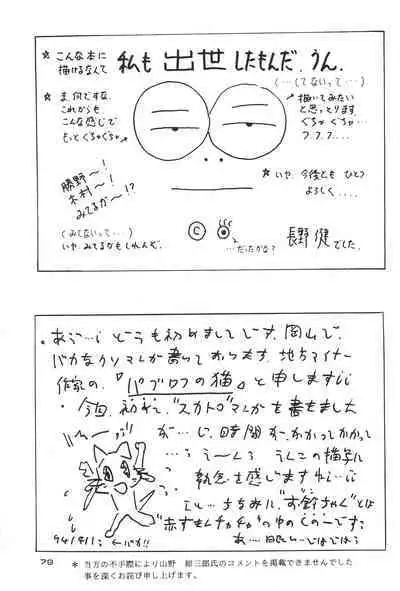 ★ こんな本に
描けるなんて
私も出世したもんだ。うん。
(…(てないって…)
★ ま、何ですな、
これからも
こんな感じで
もっとぐちゃぐちゃ
描いてみたい
と思っとります
ぐちゃぐちゃ…
フ.フ.フ....
★ いや、今後とも ひとつ
よろしく....
勝野〜!
木村〜!
みてるか〜!?
(みてないって…)
いや、みてるかもしれんだ。
©
…だったかな?
長野 健でした。
あう…どうも初めましてです。岡山で、
バカなクソマンガ書いております、地方マイナー
作家の、『パブロフの猫』と申します
・今回、初めて、"スカトロ"マンガを書きました
が…じ、時間が、かかってかかって
う〜ん
うんこの描写に
執念を感じますね
ちなみに"お鈴ちゃん"とは
"赤ずきんチャチャ"の中の
79
* 当方の不手際により山野 紺三郎氏のコメントを掲載できませんでした
事を深くお詫び申し上げます。